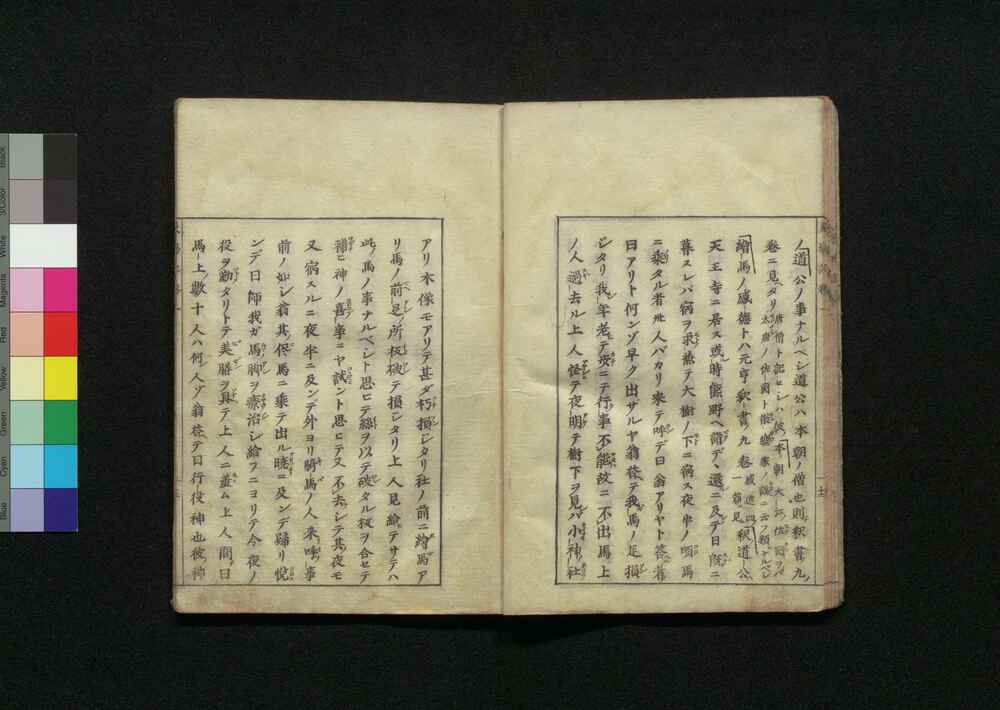 ノ道公ノ事ナルベシ道公ハ本朝ノ僧也則釈書九
巻ニ見ヘタリ
繪馬ノ感徳トハ元亨釈書九巻感進四一葉見釈道公
天王寺ニ居ス或時熊野ヘ詣デ還ニ及テ日既ニ
暮スレバ宿ヲ求兼テ大樹ノ下ニ宿ス夜半ノ頃馬
ニ乗タル者卅人バカリ来テ呼デ曰翁アリヤト答
曰アリト何ンゾ早ク出サルヤ翁答テ我馬ノ足損
シタリ我年老テ歩ニテ行事不能故ニ不出馬上
ノ人過去ル上人怪テ夜明テ樹下ヲ見バ小神社
アリ木像モアリテ甚ダ朽損シタリ社ノ前ニ繪馬ア
リ馬ノ前足ノ所板破テ損シタリ上人見給テサテハ
此馬ノ事ナルベシト思ヒテ綿ヲ以テ破タル板ヲ合セテ
補ヒ神ノ喜事ニヤ試ント思ヒテ又不去シテ其夜モ
又宿スルニ夜半ニ及ンデ外ヨリ騎馬ノ人来呼事
前ノ如シ翁其侭馬ニ乗テ出ル暁ニ及ンデ歸リ悦
ンデ曰師我ガ馬脚ヲ療治シ給フニヨリテ今夜ノ
役ヲ勤タリトテ美膳ヲ具テ上人ニ羞ム上人問曰
馬上數十人ハ何人ゾ翁答テ曰行役神也彼神